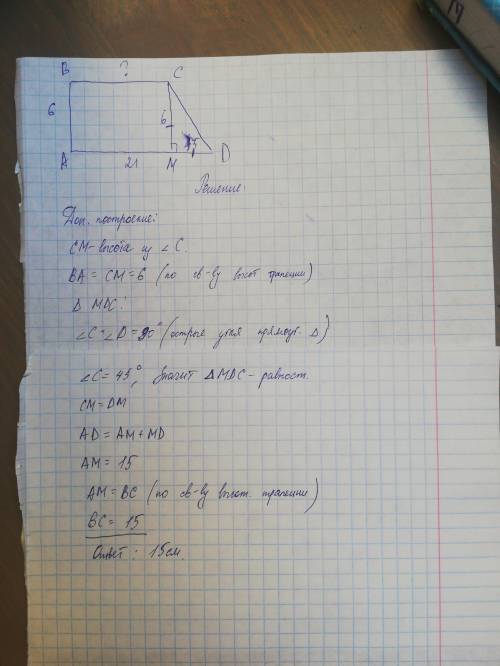 B ? C
6 6
45
A 21 M D
Решение:
Доп. построение:
CM - высота из ∠C.
BA = CM = 6 (по св-ву высот трапеции)
Δ MDC:
∠C+∠D = 90° (острые углы прямоуг. Δ)
∠C = 45°, значит ΔMDC - равност.
CM = DM
AD = AM + MD
AM = 15
AM = BC (по св-ву высот. трапеции)
BC = 15
Ответ: 15 см.